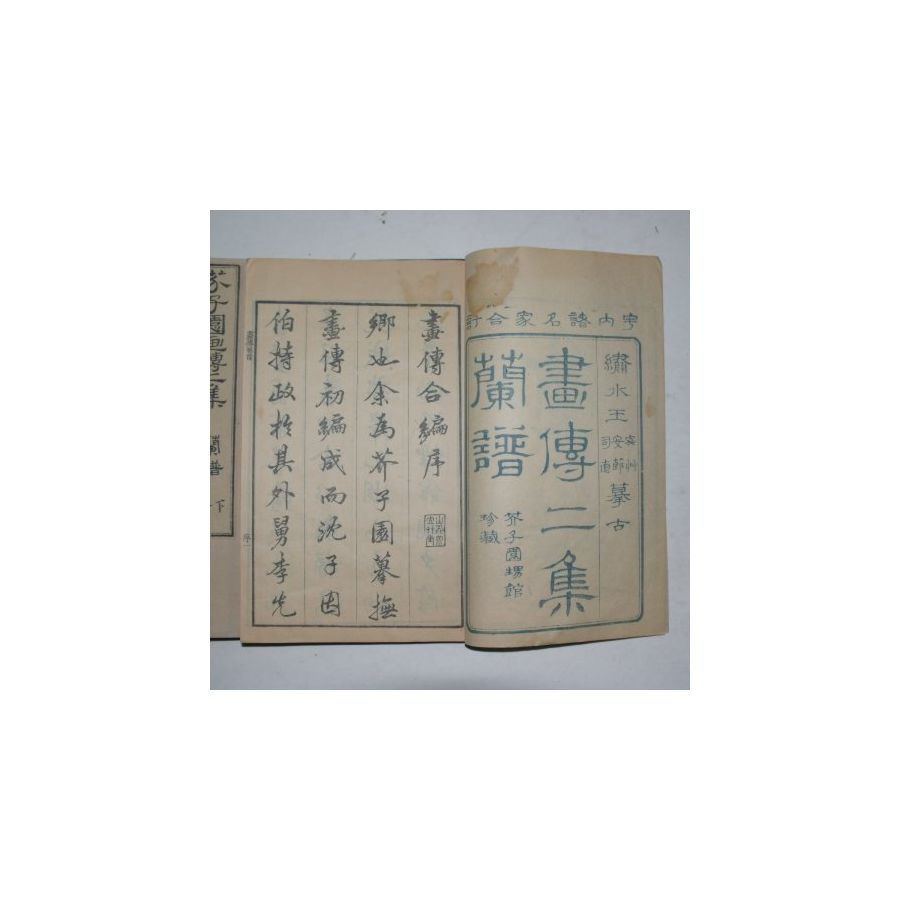 宇內諸名家合訂
繡水王宓艸安節司直摹古
畫傳二集
蘭譜
芥子園甥館
珍藏
畫傳合編序
鄉也余為芥子園摹撫
畫傳初編成而沈子因
伯持政於其外舅李先
畫傳
序一
芥子園畫傳二集 蘭譜 下